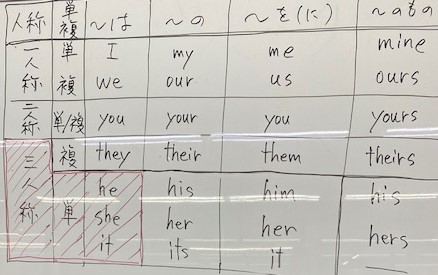 人称 単複 ～は ～の ～を(に) ～のもの
一人称 単 I my me mine
複 we our us ours
二人称 単/複 you your you yours
三人称 複 they their them theirs
単 he his him his
she her her hers
it its it